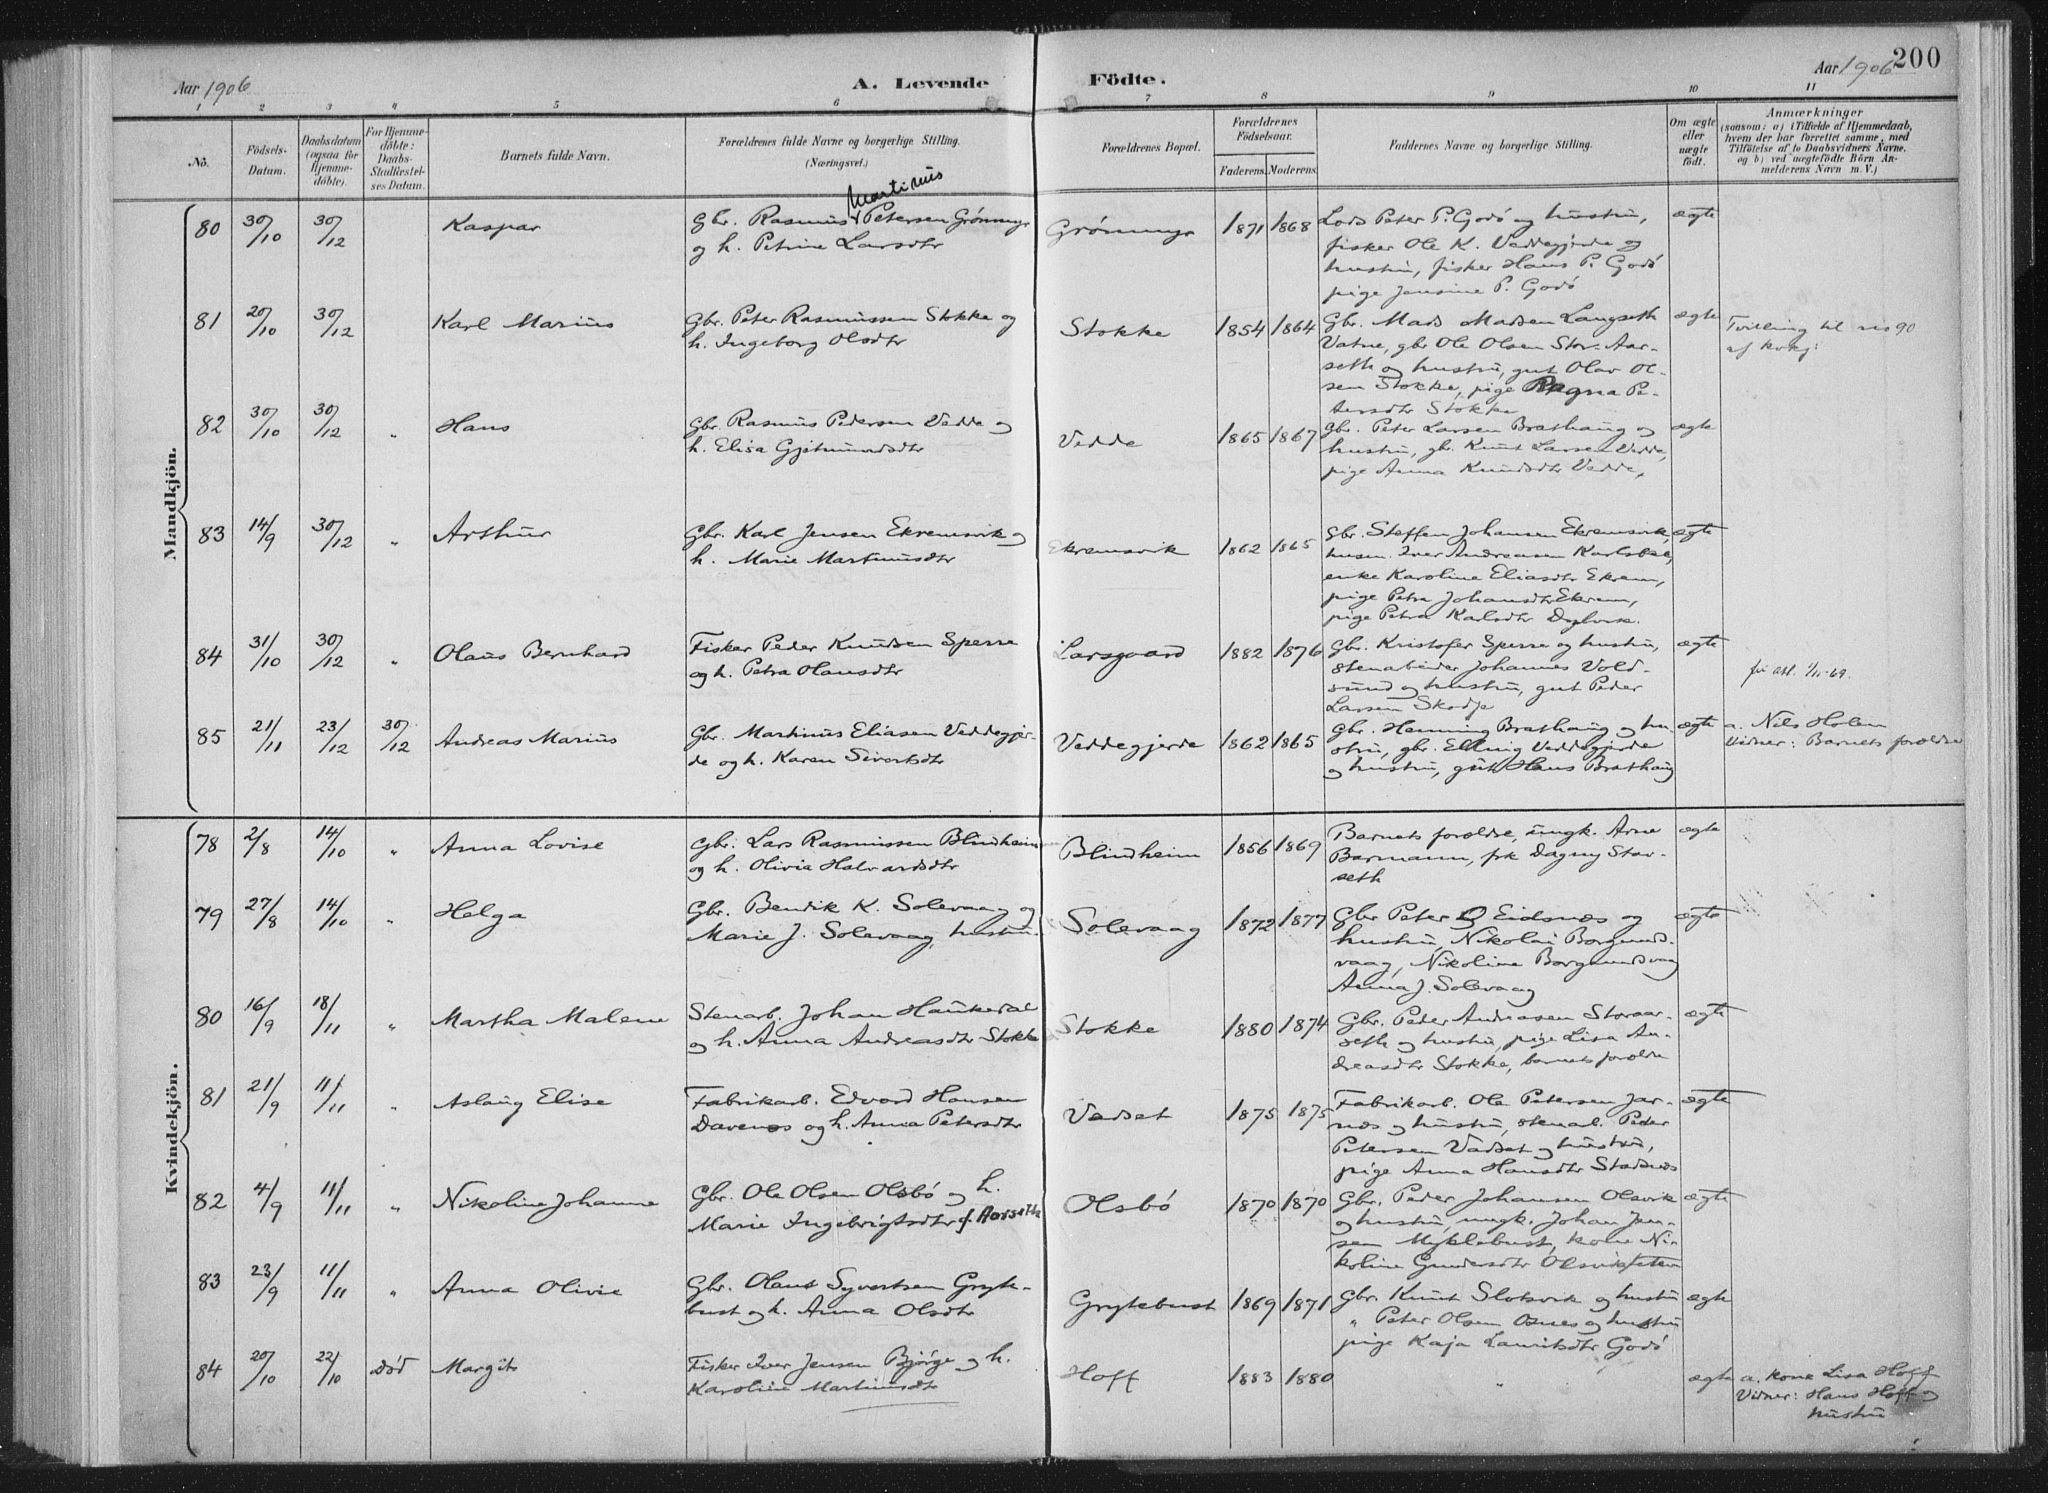 Aar 1906
A. Levende
Födte.
Aar 1906
200
1 2 3 4 5 6 7 8 9 10 11
No.
Födsels-
Datum.
Daabsdatum
(ogsaa for
Hjemme-
döbte).
For Hjemme-
döbte:
Daabs-
Stadfæstel-
ses Datum.
Barnets fulde Navn.
Forældrenes fulde Navne og borgerlige Stilling.
(Næringsvei.)
Forældrenes Bopæl.
Forældrenes
Födselsaar.
Faderens. Moderens.
Faddernes Navne og borgerlige Stilling.
Om ægte
eller
uægte
födt.
Anmærkninger
(saasom: a) i Tilfælde af Hjemmedaab,
hvem der har forrettet samme, med
Tilföielse af to Daabsvidners Navne,
og b) ved uægtefödte Börn An-
melderens Navn m. V.)
Mandkjön.
80 30/10 30/12 Kaspar
Martinus
Gbr. Rasmus Petersen Grönmyr
og h. Petrine Larsdtr
Grönmyr 1871 1868
Lods Peter P. Godö og hustru,
fisker Ole K. Veddegjerde og
hustru, fisker Hans P. Godö
pige Jensine P. Godö
ægte
81 20/10 30/12 Karl Marius
Gbr. Peter Rasmussen Stokke og
h. Ingeborg Olsdtr
Stokke 1854 1864
Gbr. Mads Madsen Langseth
Vatne, gbr Ole Olsen Stor-Aar-
seth og hustru, gut Olav Ol-
sen Stokke, pige Ragna Pe-
tersdtr Stokke
ægte
Tvilling til no 90
af kvkj:
82 30/10 30/12 " Hans
Gbr. Rasmus Pedersen Vedde og
h. Elisa Gjetmundsdtr
Vedde 1865 1867
Gbr. Peter Larsen Brathaug og
hustru, gb. Knut Larsen Vedde,
pige Anna Knudsdtr Vedde,
ægte
83 14/9 30/12 " Arthur
Gbr. Karl Jensen Ekremsvik og
h. Marie Martinusdtr
Ekremsvik 1862 1865
Gbr. Steffen Johansen Ekremsvik,
husm. Iver Andreasen
enke Karoline Eliasdtr Ekrem,
pige Petra Johansdtr Ekrem,
pige Petra Karlsdtr
ægte
84 31/10 30/12 " Olaus Bernhard
Fisker Peder Knudsen Sperre
og h. Petra Olausdtr
Larsgaard 1882 1876
Gbr. Kristofer Sperre og hustru,
stenarbeider Johannes Vold-
sund og hustru, gut Peder
Larsen Skodje
ægte
85 21/11 23/12 30/12 Andreas Marius
Gbr. Martinus Eliasen Veddegjer-
de og h. Karen Sivertsdtr
Veddegjerde 1862 1865
Gbr. Henning Brathaug og hu-
stru, gbr. Elling Veddegjerde
og hustru, gut Hans Brathaug
ægte
a. Nils Holen
Vidner: Barnets forældre
Kvindekjön.
78 2/8 14/10 " Anna Lovise
Gbr. Lars Rasmussen Blindheim
og h. Olivia Halvardsdtr
Blindheim 1856 1869
Barnets forældre, ungk. Arne
Barmann, frk Dagny Stor-
seth
ægte
79 27/8 14/10 " Helga
Gbr. Bendik K. Solevaag og
Marie J. Solevaag, hustru.
Solevaag 1872 1877
Gbr Peter O Eidsnæs og
hustru, Nikolai Borgunds-
vaag, Nikoline Borgundsvaag
Anna J. Solevaag
ægte
80 16/9 18/11 " Martha Malene
Stenarb. Johan Haukedal
og h. Anna Andreasdtr Stokke
Stokke 1880 1874
Gbr. Peter Andreasen Storaar-
seth og hustru, pige Lisa An-
dreasdtr Stokke, barnets forældre
ægte
81 21/9 11/11 " Aslaug Elise
Fabrikarb. Edvard Hansen
Davenes og h. Anna Petersdtr
Vadset 1875 1875
Fabrikarb. Ole Petersen Jar-
næs og hustru, stenarb. Peder
Petersen Vadset og hustru,
pige Anna Hansdtr Stadsnæs
ægte
82 4/9 11/11 " Nikoline Johanne
Gbr. Ole Olsen Olsbö og h.
Marie Ingebrigtsdtr f. Aarseth
Olsbö 1870 1870
Gbr. Peder Johansen Olsvik
og hustru, ungk. Johan Jen-
sen Myklebust, kone Ni-
koline Gundersdtr
ægte
83 23/9 11/11 " Anna Olivie
Gbr. Olaus Syvertsen Gryte-
bust og h. Anna Olsdtr
Grytebust 1869 1871
Gbr Knut Slotsvik og hustru
" Peter Olsen og hustru
pige Kaja Lauritsdtr Godö
ægte
84 20/10 22/10 Död Margit
Fisker Iver Jensen Bjørge og h.
Karoline Martinusdtr
Hoff 1883 1880
"
ægte
a. kone Lisa Hoff
Vidner: Hans Hoff og
hustru